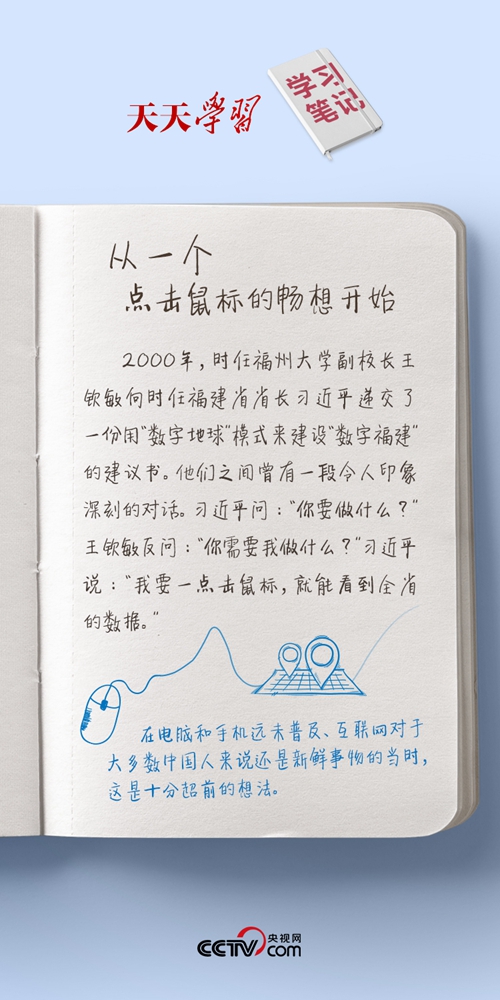 天天学習
学习
笔记
从一个
点击鼠标的畅想开始
2000年，时任福州大学副校长王
钦敏向时任福建省省长习近平递交了
一份用"数字地球"模式来建设"数字福建"
的建议书。他们之间曾有一段令人印象
深刻的对话。习近平问："你要做什么？"
王钦敏反问："你需要我做什么？"习近平
说："我要一点击鼠标，就能看到全省
的数据。"
在电脑和手机远未普及、互联网对于
大多数中国人来说还是新鲜事物的当时，
这是十分超前的想法。
CCTV央视网
com